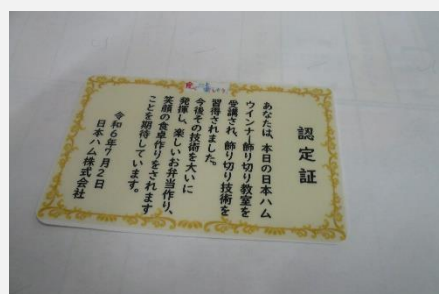 認定証
あなたは、本日の日本ハム
ウインナー飾り切り教室を
受講され、飾り切り技術を
習得されました。
今後その技術を大いに
発揮し、楽しいお弁当作り、
笑顔の食卓作りをされます
ことを期待しています。
令和6年7月2日
日本ハム株式会社